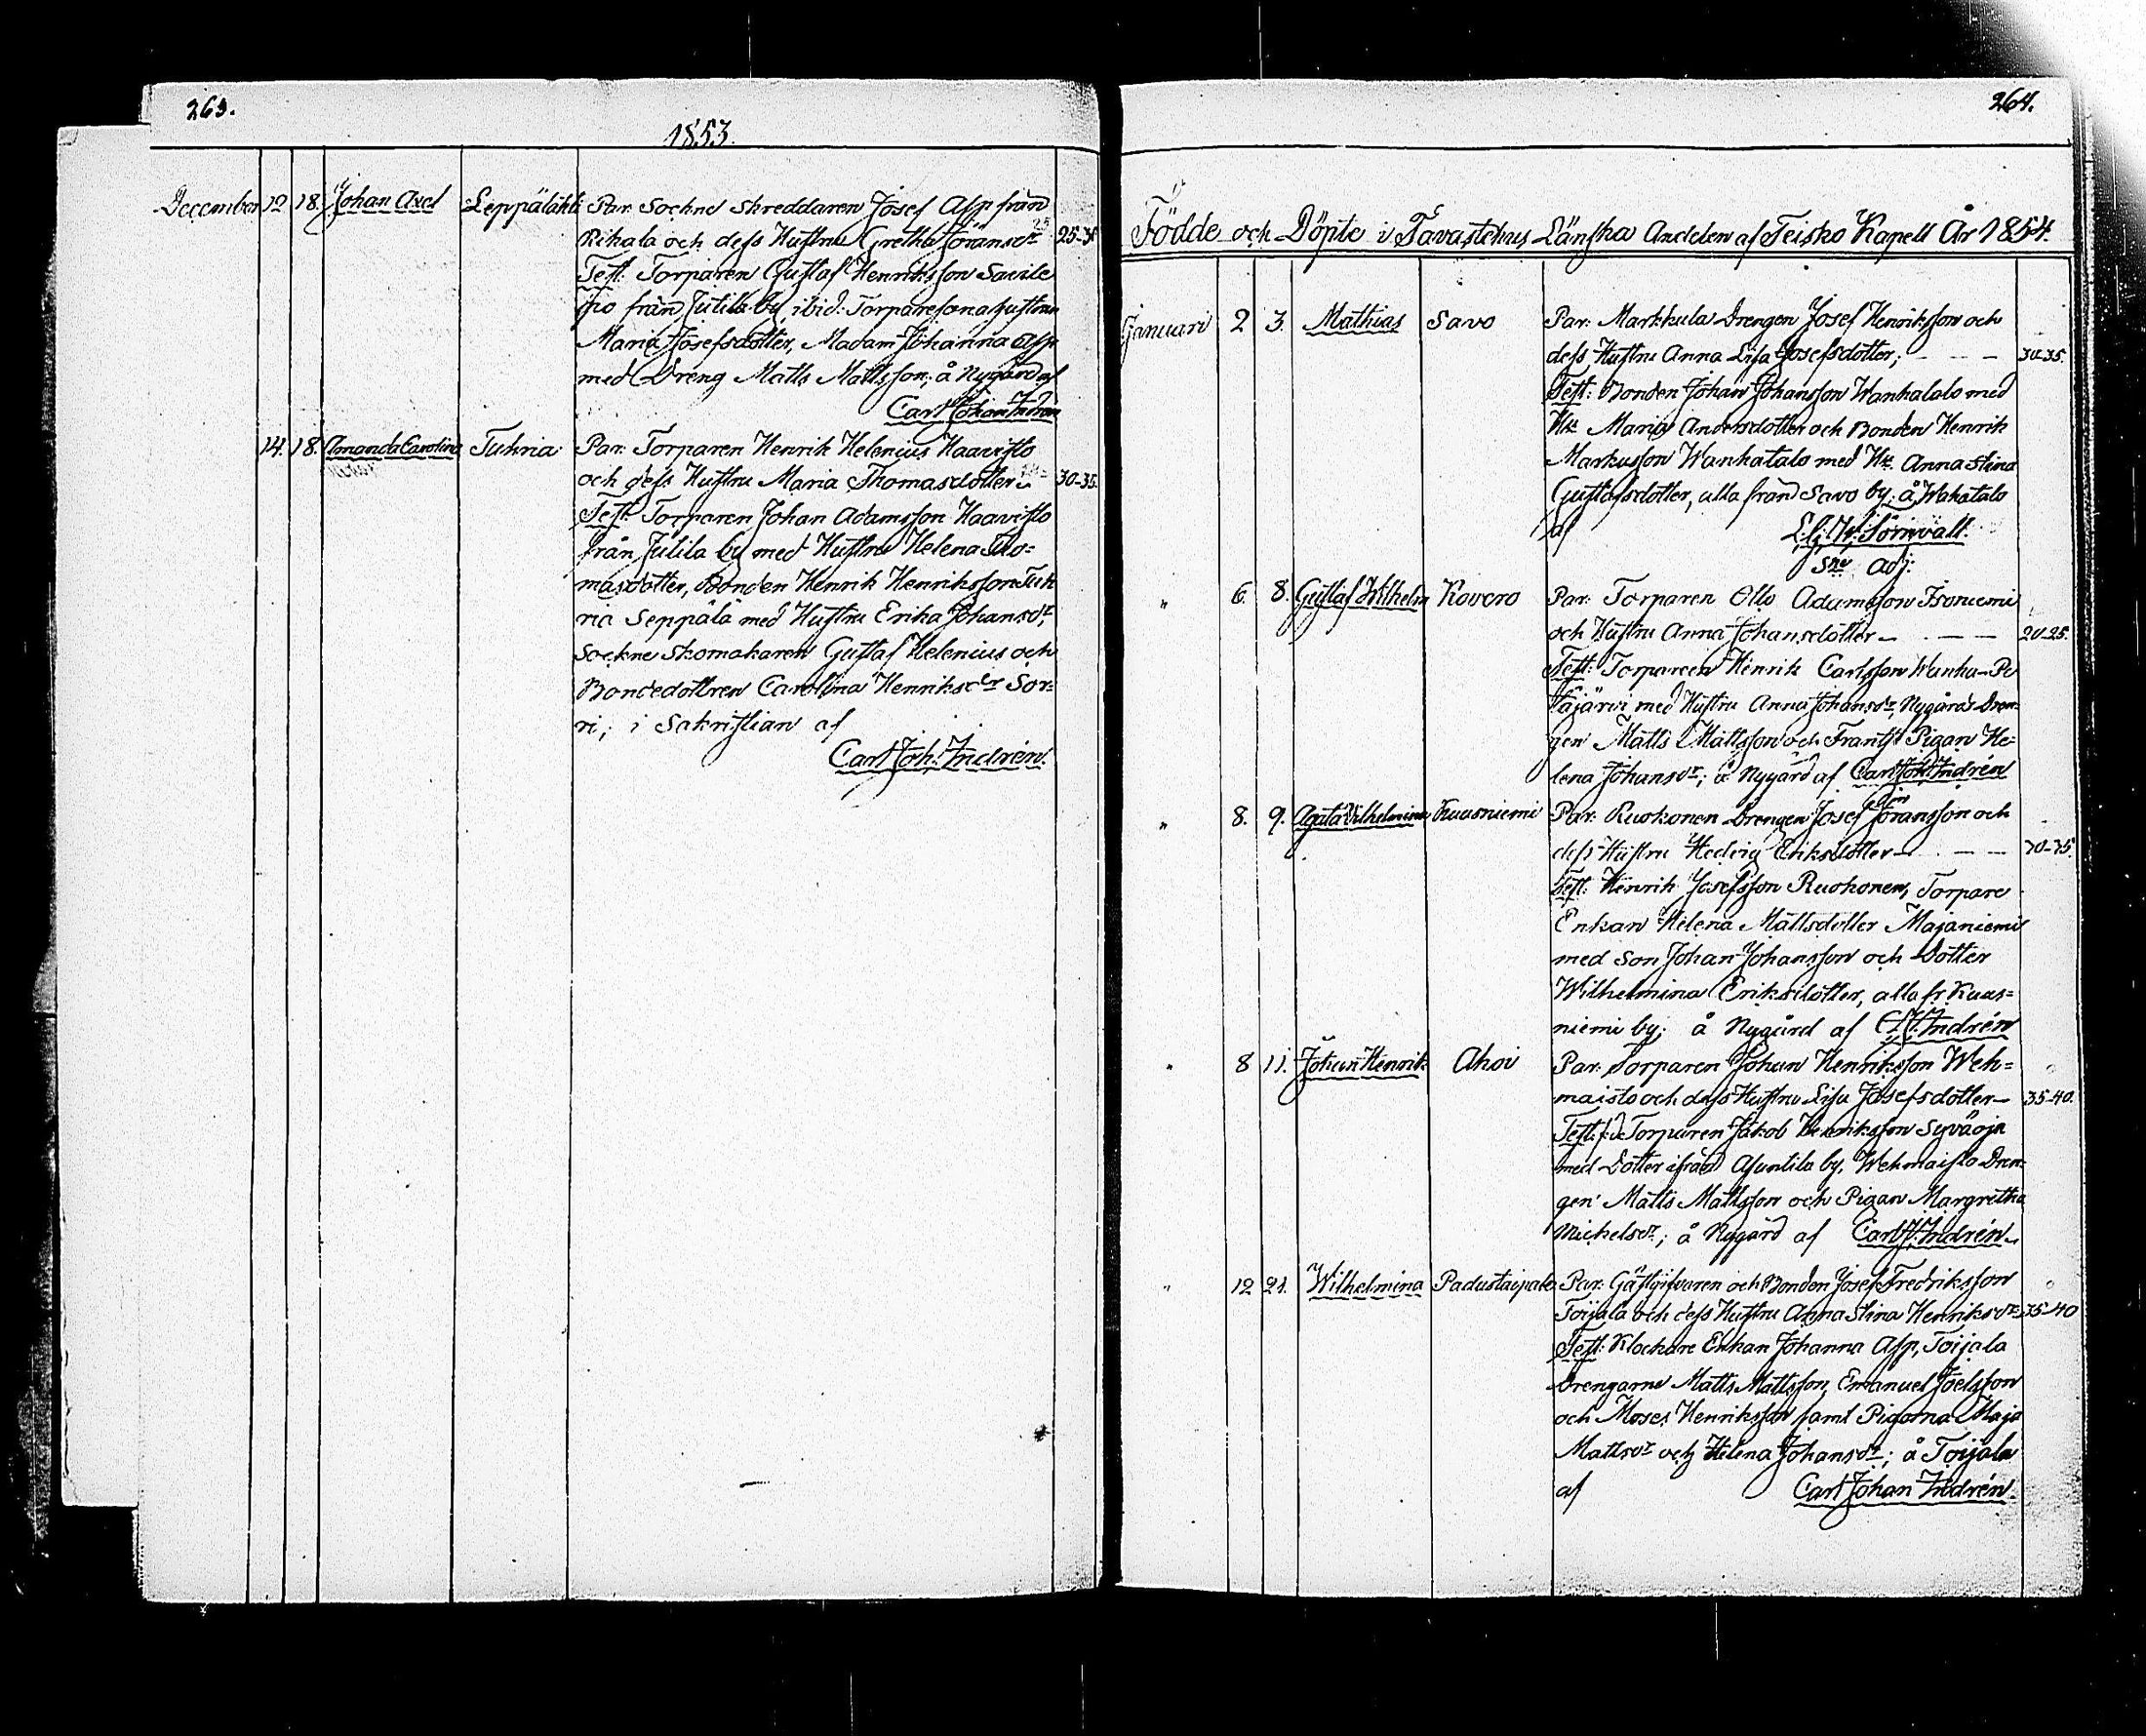 263.
1853.
December 12 18. Johan Axel Leppälahti Par. Sockne skreddaren Josef Asp från
Rihala och dess Hustru Gretha Göransdr 25-30
Test: Torparen Gustaf Henriksson Savile
ipo från Jutila by, ibid: Torparesonahustrun
Maria Josefsdotter, Madam Johanna Asp
med Dreng Matts Mattsson; å Nygård af
Carl Johan Indrén
14. 18. Amanda Carolina Tukria Par: Torparen Henrik Helenius Haavisto
och dess Hustru Maria Thomasdotter 30-35.
Test: Torparen Johan Adamsson Haavisto
från Jutila by med Hustru Helena Tho-
masdotter, Bonden Henrik Henriksson Tuk
ria Seppälä med Hustru Erika Johansdr,
Sockne skomakaren Gustaf Helenius och
Bondedottren Carolina Henriksdr Sor-
ri; i Sakristian af
Carl Joh. Indrén.
264.
Födde och Döpte i Tavastehus Länska Andelen af Teisko Kapell År 1854.
Januari 2 3. Mathias Savo Par: Markkula Drengen Josef Henriksson och
dess Hustru Anna Lisa Josefsdotter; - - - 30-35.
Test: Bonden Johan Johansson Wanhatalo med
Hu Maria Andersdotter och Bonden Henrik
Markusson Wanhatalo med Hu. Anna Stina
Gustafsdotter, alla från Savo by; å Wahatalo
af
Sne Adj:
" 6. 8. Gustaf Wilhelm Kovero Par: Torparen Otto Adamsson Isoniemi
och Hustru Anna Johansdotter - - - 20-25.
Test: Torparen Henrik Carlsson Wanha-Pe
täjärvi med Hustru Anna Johansdr, Nygårds Dren-
gen Matts Mattsson och Pigan He-
lena Johansdr; å Nygård af Carl Joh. Indrén
" 8. 9. Agata Vilhelmina Kuusniemi Par: Ruokonen Drengen Josef Göransson och
dess Hustru Hedvig Eriksdotter - - -
Test: Henrik Josefsson Ruokonen, Torpare
Enkan Helena Mattsdotter Majaniemi
med Son Johan Johansson och Dotter
Wilhelmina Eriksdotter, alla fr. Kuus-
niemi by; å Nygård af C. J. Indrén
" 8 11. Johan Henrik Ahoi Par: Torparen Johan Henriksson Weh-
maisto och dess Hustru Lisa Josefsdotter - 35-40.
Test: Torparen Jakob Henriksson Syväoja
med Dotter ifrån Asuntila by, Wehmaisto Dren-
gen Matts Mattsson och Pigan Margretha
Michelsdr; å Nygård af Carl J. Indrén
" 12 21. Wilhelmina Padustaipale Par: Gästgifvaren och Bonden Josef Fredriksson
Toijala och dess Hustru Anna Stina Henriksdr 35-40
Test: Klockare Enkan Johanna Asp, Toijala
Drengarne Matts Mattsson, Emanuel Joelsson
och Moses Henriksson samt Pigorna Maja
Mattsdr och Helena Johansdr; å Toijala
af Carl Johan Indrén.